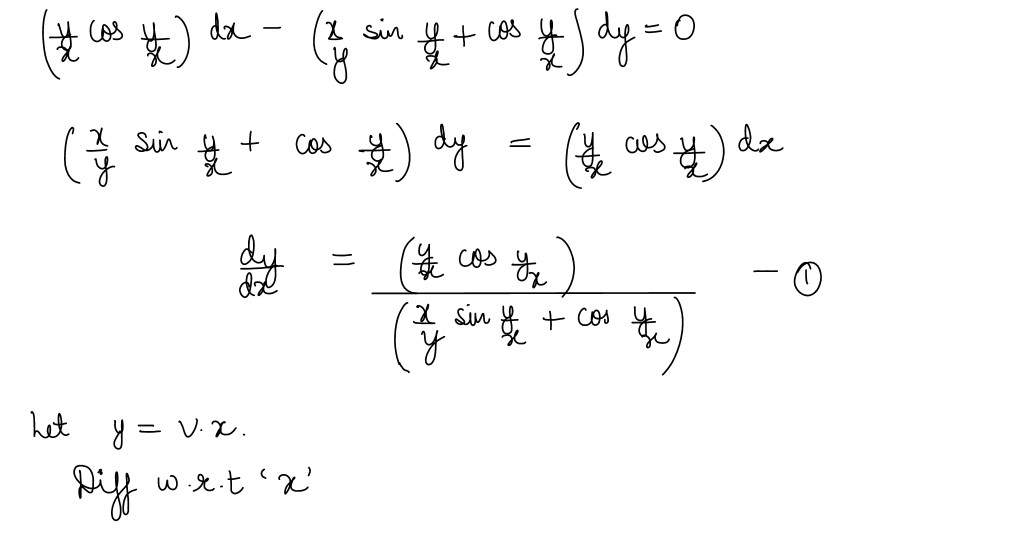 (y/x cos y/x) dx - (x/y sin y/x + cos y/x) dy = 0
(x/y sin y/x + cos y/x) dy = (y/x cos y/x) dx
dy/dx = (y/x cos y/x) / (x/y sin y/x + cos y/x) - ①
Let y = v.x.
Diff w.r.t 'x'